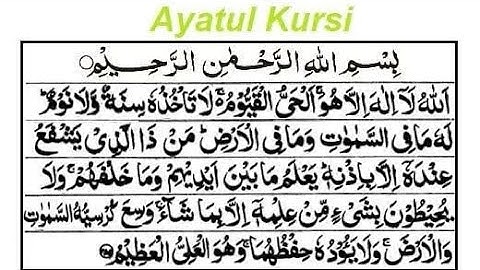 Ayatul Kursi
بِسْمِ اللهِ الرَّحْمٰنِ الرَّحِيْمِ○
اَللهُ لَآ اِلٰهَ اِلَّا هُوَ ۚ اَلْحَيُّ الْقَيُّوْمُ ۚ لَا تَاْخُذُهٗ سِنَةٌ وَّلَا نَوْمٌ ؕ
لَهٗ مَا فِى السَّمٰوٰتِ وَمَا فِى الْاَرْضِ ؕ مَنْ ذَا الَّذِيْ يَشْفَعُ
عِنْدَهٗٓ اِلَّا بِاِذْنِهٖ ؕ يَعْلَمُ مَا بَيْنَ اَيْدِيْهِمْ وَمَا خَلْفَهُمْ ۚ وَلَا
يُحِيْطُوْنَ بِشَيْءٍ مِّنْ عِلْمِهٖٓ اِلَّا بِمَا شَآءَ ۚ وَسِعَ كُرْسِيُّهُ السَّمٰوٰتِ
وَالْاَرْضَ ۚ وَلَا يَـُٔوْدُهٗ حِفْظُهُمَا ۚ وَهُوَ الْعَلِيُّ الْعَظِيْمُ